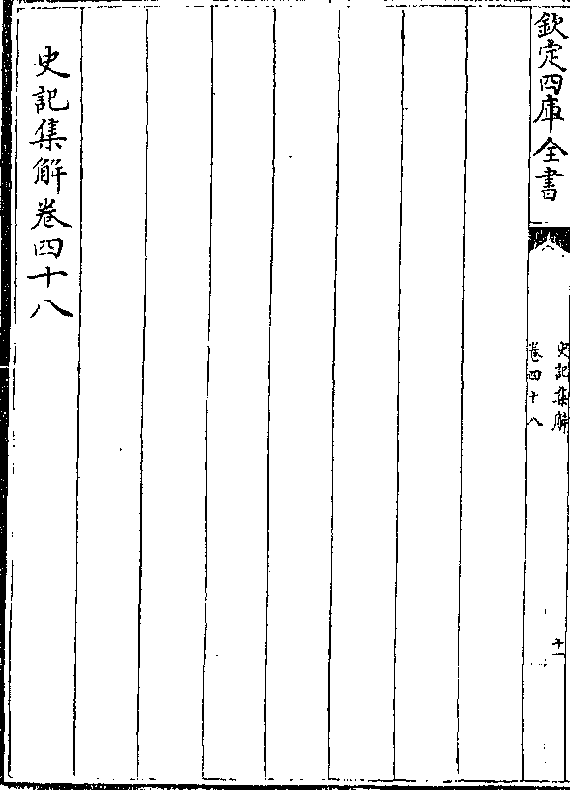 欽定四庫全書
史記集解
卷四十八
十一
史記集解卷四十八